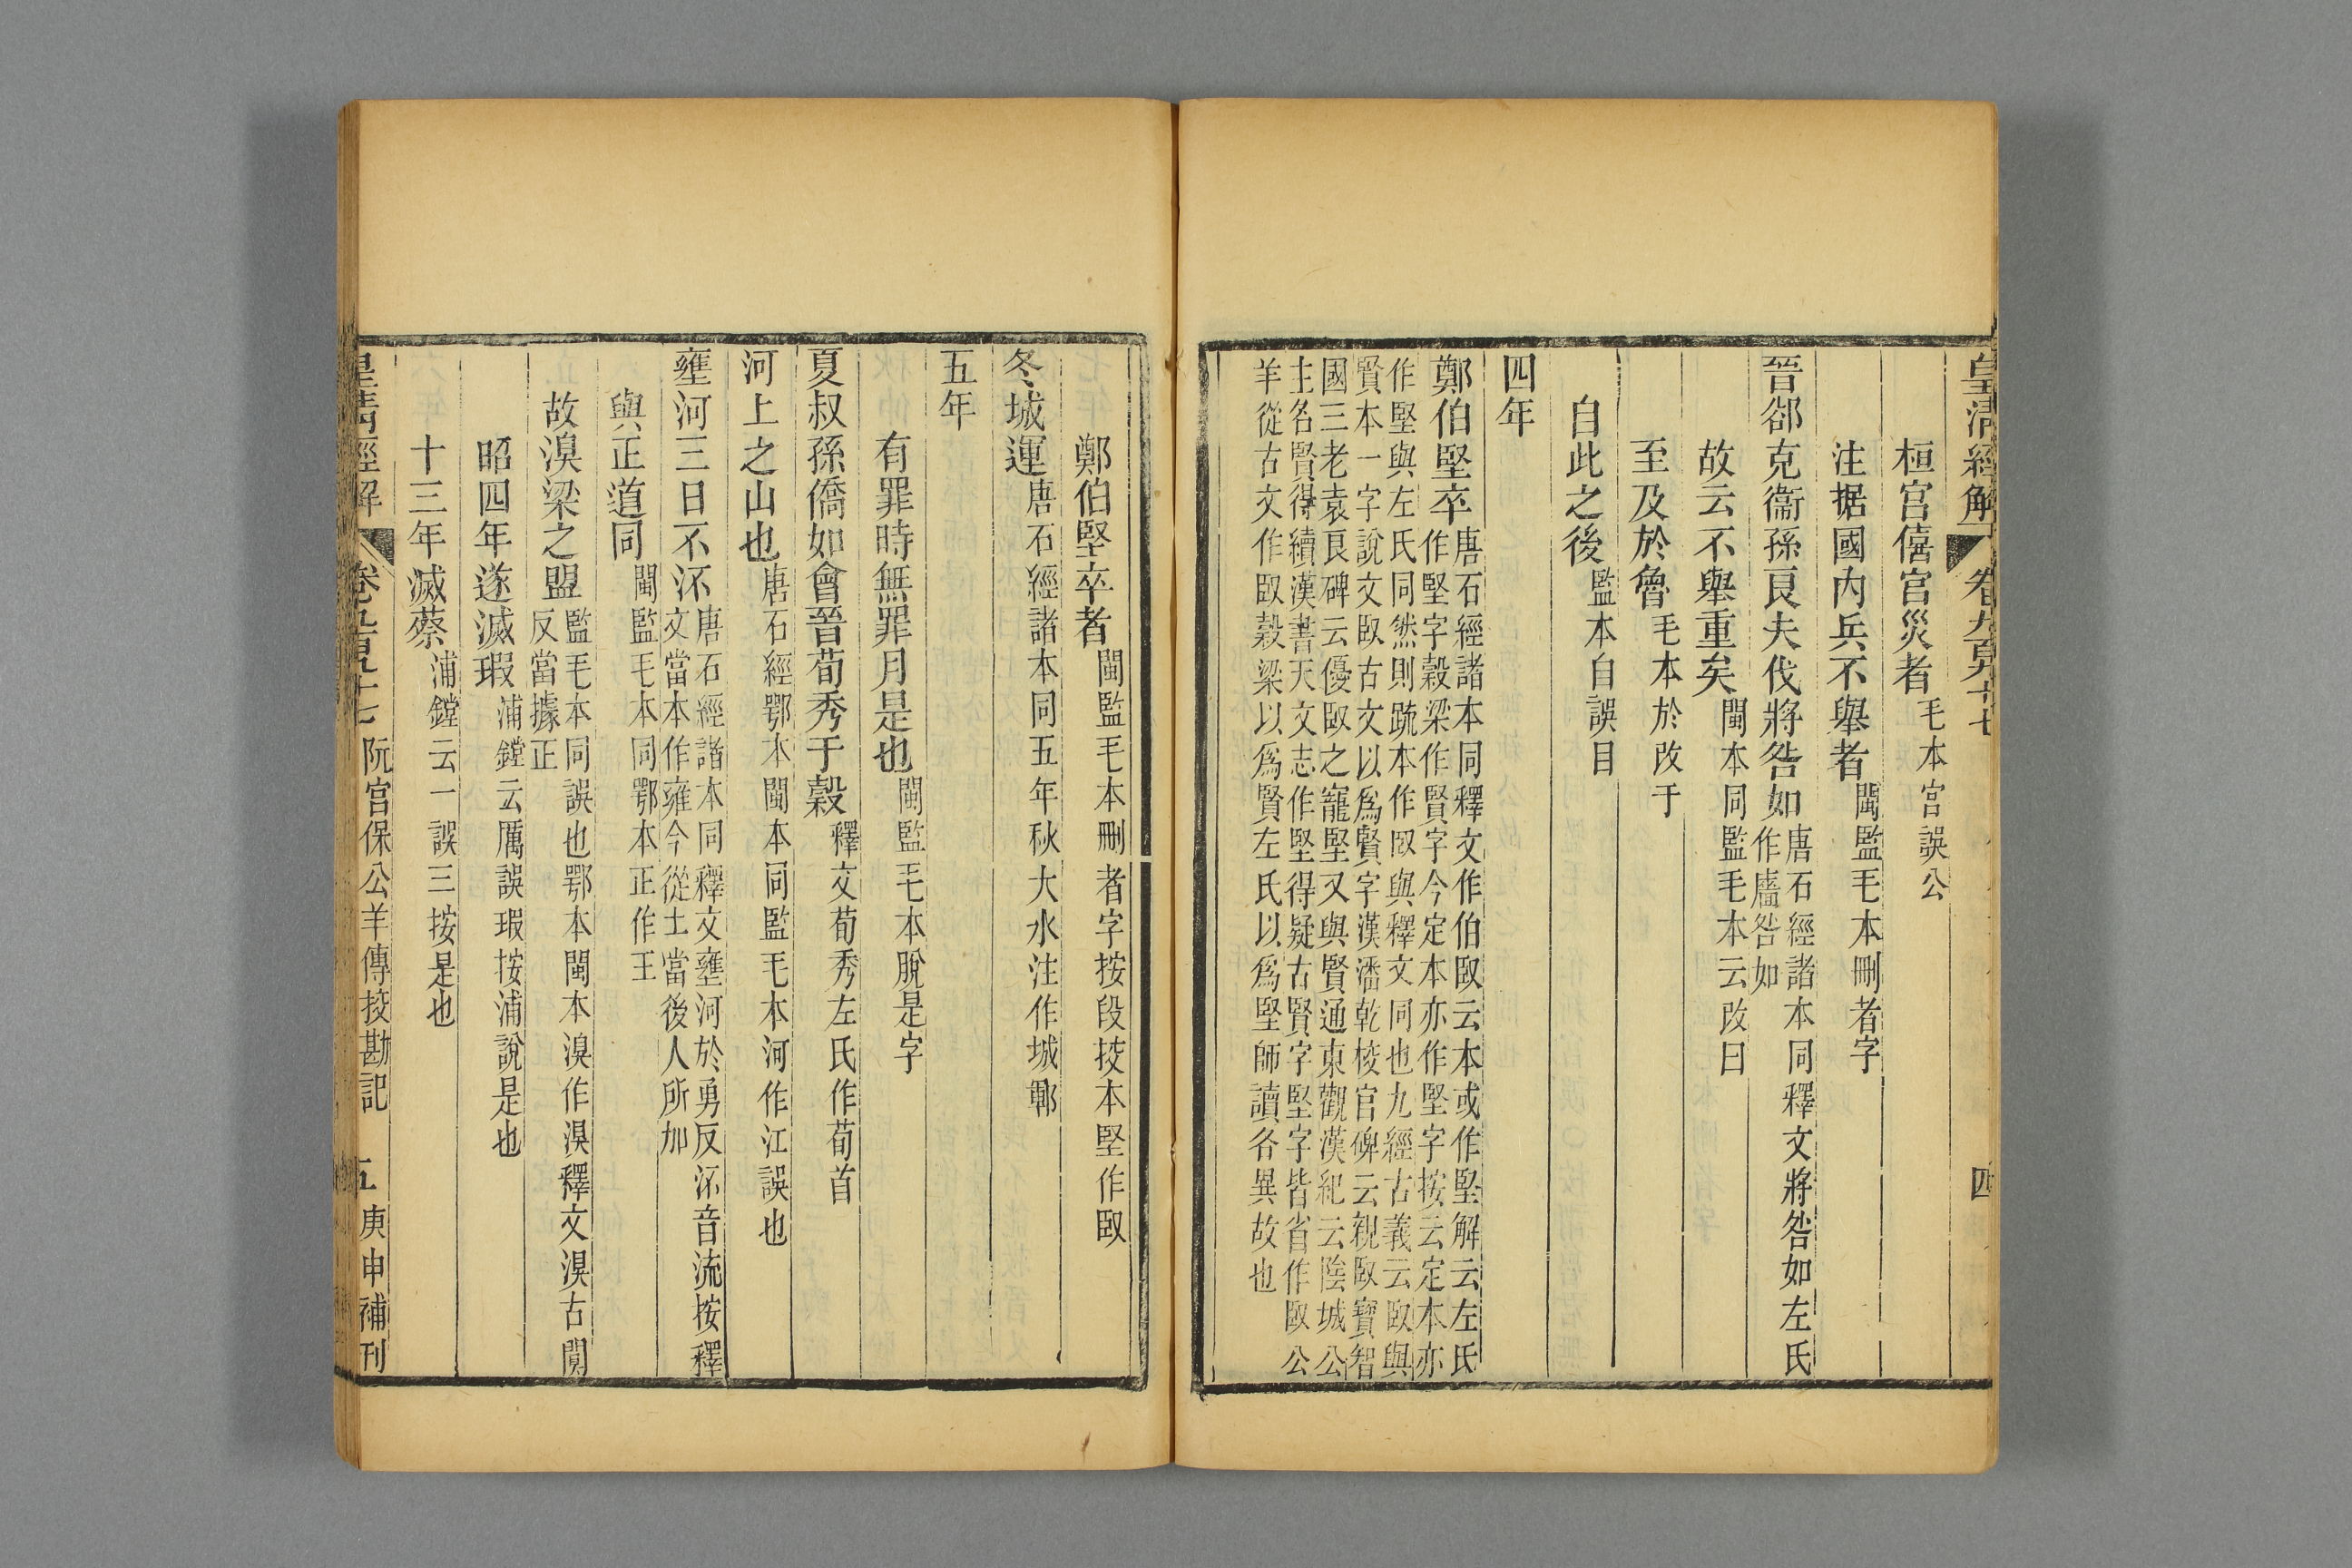 皇清經解 卷九百九十七 四
桓宮僖宮災者毛本宮誤公
注据國內兵不舉者閩監毛本刪者字
晉郤克衞孫良夫伐將咎如唐石經諸本同釋文將咎如左氏
作廧咎如
故云不舉重矣閩本同監毛本云改曰
至及於魯毛本於改于
自此之後監本自誤目
四年
鄭伯堅卒唐石經諸本同釋文作伯臤云本或作堅解云左氏
作堅字穀梁作賢字今定本亦作堅字按云定本亦
作堅與左氏同然則䟽本作臤與釋文同也九經古義云臤與
賢本一字說文臤古文以爲賢字漢潘乾校官碑云親臤寶智
國三老袁良碑云優臤之寵堅又與賢通東觀漢紀云陰城公
主名賢得續漢書天文志作堅得疑古賢字堅字皆省作臤公
羊從古文作臤穀梁以爲賢左氏以爲堅師讀各異故也
鄭伯堅卒者閩監毛本刪者字按段挍本堅作臤
冬城運唐石經諸本同五年秋大水注作城鄆
五年
有罪時無罪月是也閩監毛本脫是字
夏叔孫僑如會晉荀秀于穀釋文荀秀左氏作荀首
河上之山也唐石經鄂本閩本同監毛本河作江誤也
壅河三日不㳅唐石經諸本同釋文壅河於勇反㳅音流按釋
文當本作雍今從土當後人所加
與正道同閩監毛本同鄂本正作王
故湨梁之盟監毛本同誤也鄂本閩本湨作溴釋文湨古闃
反當據正
昭四年遂滅瑕浦鏜云厲誤瑕按浦說是也
十三年滅蔡浦鏜云一誤三按是也
皇清經解 卷九百九十七 阮宮保公羊傳挍勘記 五 庚申補刊